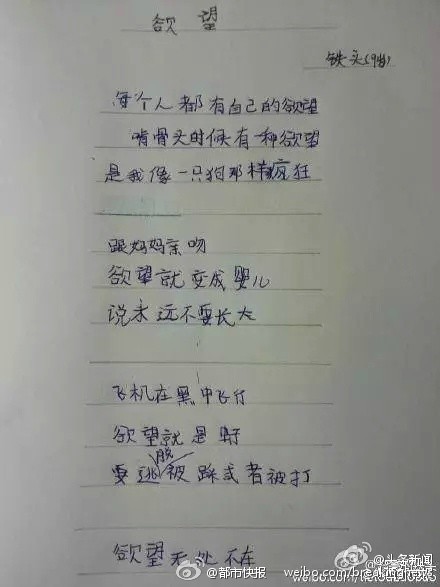 欲望
铁头(9岁)
每个人都有自己的欲望
啃骨头时候有一种欲望
是我像一只狗那样疯狂
跟妈妈亲吻
欲望就变成婴儿
说永远不要长大
飞机在黑中飞行
欲望就是野
要逃脱被踩或者被打
欲望无处不在
@头条新闻
@都市快报 weibo.com/breakingnews